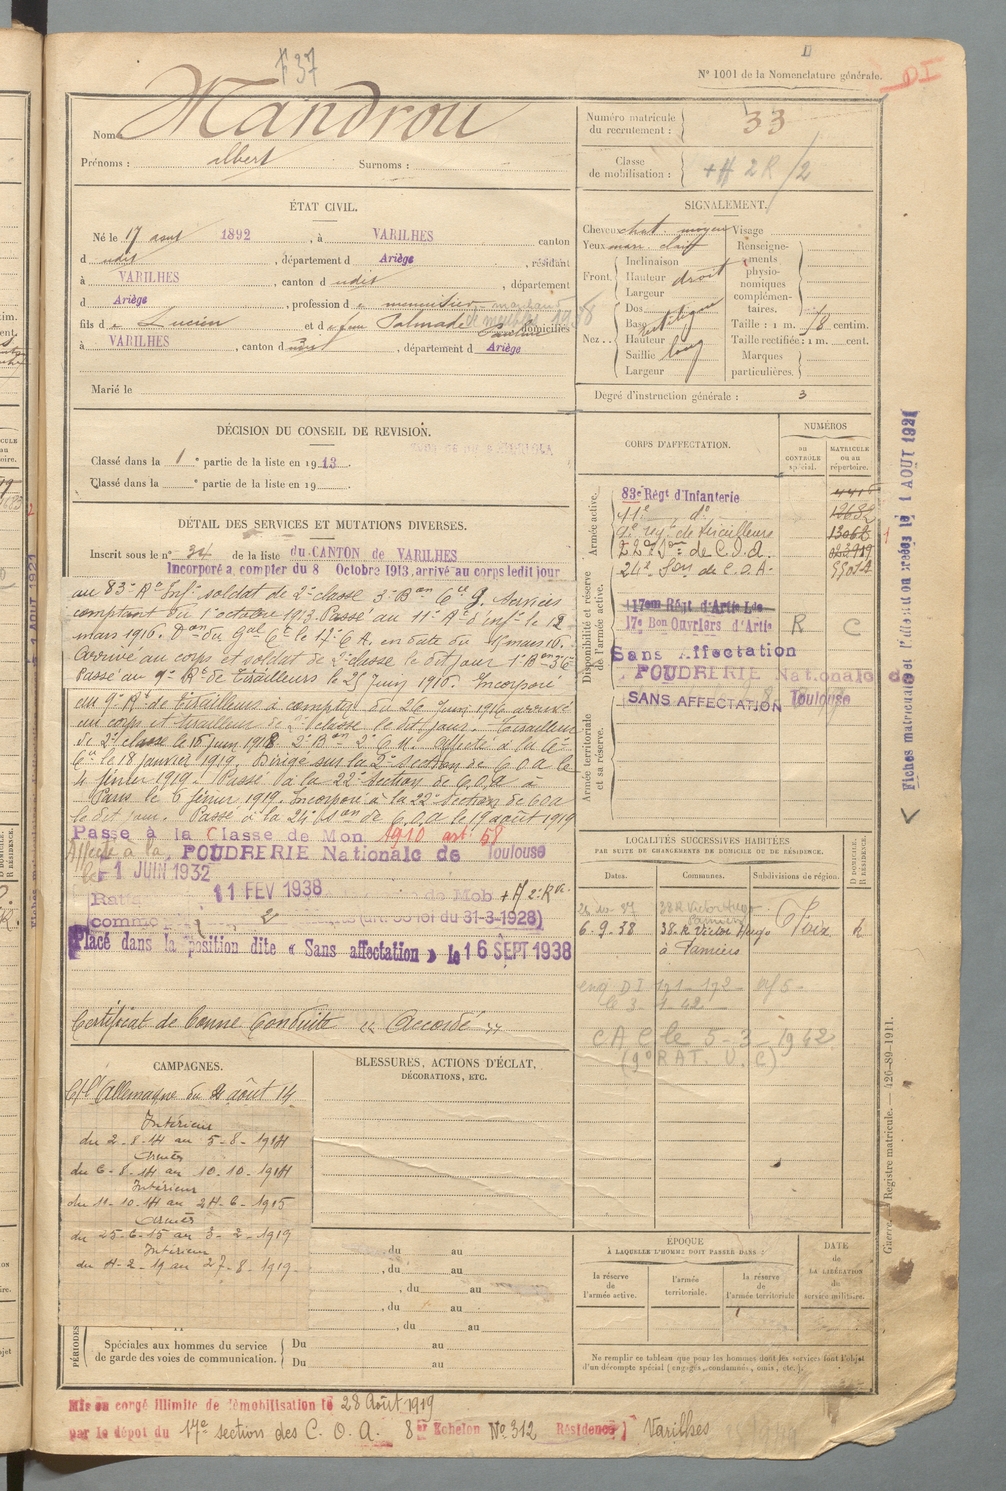 F 37
II
N° 1001 de la Nomenclature générale.
DI
Nom : Mandrou
Prénoms : Albert Surnoms :
Numéro matricule du recrutement : 33
Classe de mobilisation : + A 2 R /2
ÉTAT CIVIL.
Né le 17 aout 1892, à VARILHES canton
d udit, département d Ariège, résidant
à VARILHES, canton d udit, département
d Ariège, profession d e menuisier marchand de meubles 1938
fils d e Lucien et d e feue Palmade Caroline domiciliés
à VARILHES, canton d udit, département d Ariège
Marié le
SIGNALEMENT.
Cheveux chat. moyen Visage
Yeux marr. clair
Front. Inclinaison
Hauteur droit
Largeur
Nez.. Dos
Base rectiligne
Hauteur
Saillie long
Largeur
Renseignements physionomiques complémentaires.
Taille : 1 m. 78 centim.
Taille rectifiée : 1 m. cent.
Marques particulières.
Degré d'instruction générale : 3
DÉCISION DU CONSEIL DE REVISION.
Classé dans la 1e partie de la liste en 1913.
Classé dans la e partie de la liste en 19
DÉTAIL DES SERVICES ET MUTATIONS DIVERSES.
Inscrit sous le n° 34 de la liste du CANTON de VARILHES
Incorporé à compter du 8 Octobre 1913, arrivé au corps ledit jour
au 83e Rt Infie soldat de 2e classe 3e Bon Cie 9. Services
comptant du 1er octobre 1913 Passé au 11e Rt d'inf. le 12
mars 1916. Don du Gal Ct le 17e C A. en date du mars 16.
Arrivé au corps et soldat de 2e classe le dit jour 1er Bon 36
Passé au 9e Rt de Tirailleurs le 25 Juin 1916. Incorporé
au 9e Rt de Tirailleurs à compter du 26 Juin 1916 arrivé
au corps et tirailleur de 2e classe le dit jour. Tirailleur
de 2e classe le 16 juin 1918 2e Bon 2e C M. Affecté à la 6e
Cie le 18 janvier 1919. Dirigé sur la 2e Section de C O A le
4 février 1919. Passé à la 22e Section de C.O.A à
Paris le 6 février 1919. Incorporé à la 22e Section de C O A
le dit jour. Passé à la 24e Son de C.O.A le 19 août 1919
Passé à la Classe de Mon 1910 art. 58
Affecté à la POUDRERIE Nationale de Toulouse
le 1 JUIN 1932
11 FEV 1938 de Mob + A 2e Rve
comme 2 (art. 58 loi du 31-3-1928)
Placé dans la position dite « Sans affectation » le 16 SEPT 1938
Certificat de bonne conduite « Accordé »
CORPS D'AFFECTATION.
NUMÉROS
au CONTRÔLE spécial.
MATRICULE ou au répertoire.
Armée active.
83e Régt d'Infanterie
11e do 12682
9e reg.t de tirailleurs 13062
22e Son de C.O.A.
24e Son de C.O.A.
Disponibilité et réserve de l'armée active.
117em Régt d'Artie Lde
17e Bon Ouvriers d'Artie R C
Sans Affectation
POUDRERIE Nationale de
SANS AFFECTATION Toulouse
Armée territoriale et sa réserve.
Fiches matricule et l'attention créées le 1 AOÛT 1921
LOCALITÉS SUCCESSIVES HABITÉES
PAR SUITE DE CHANGEMENTS DE DOMICILE OU DE RÉSIDENCE.
Dates. Communes. Subdivisions de région. D DOMICILE. R RÉSIDENCE.
38 R Victor Hugo
Pamiers
6-9-38 38 R Victor Hugo Foix R
à Pamiers
enq DI 171-172
le 3-1-42
C A C le 5-3-1942
CAMPAGNES.
C/re Allemagne du 2 août 14
Intérieur
du 2-8-14 au 5-8-1914
Armées
du 6-8-14 au 10-10-1914
Intérieur
du 11-10-14 au 24-6-1915
Armées
du 25-6-15 au 3-2-1919
Intérieur
du 4-2-19 au 27-8-1919
BLESSURES, ACTIONS D'ÉCLAT,
DÉCORATIONS, ETC.
, du au
, du au
, du au
, du au
, du au
PÉRIODES
Spéciales aux hommes du service de garde des voies de communication. Du au
Du au
ÉPOQUE
À LAQUELLE L'HOMME DOIT PASSER DANS :
la réserve de l'armée active.
l'armée territoriale.
la réserve de l'armée territoriale
DATE de LA LIBÉRATION du service militaire.
Ne remplir ce tableau que pour les hommes dont les services font l'objet
d'un décompte spécial (engagés, condamnés, omis, etc.).
Guerre. — Registre matricule. — 426-89-1911.
Mis en congé illimité de démobilisation le 28 Août 1919
par le dépôt du 17e section des C. O. A. 8er Echelon No 312 Résidence Varilhes